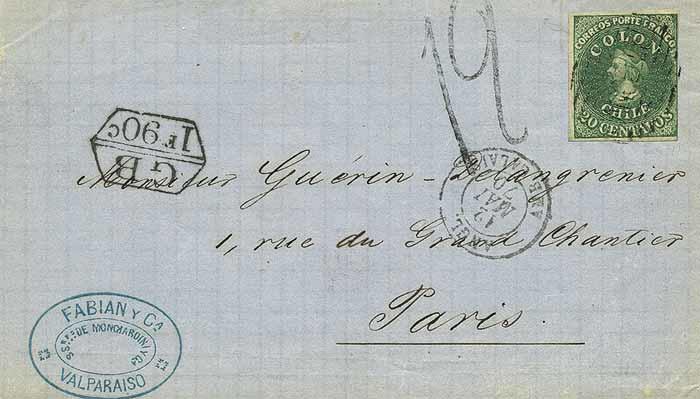 CORREOS PORTE FRANCO
COLON
CHILE
20 CENTAVOS
12
GB
1F90c
ANGL. AMB. CALAIS
12
MAI
70
Monsieur Guérin-Delangrenier
1, rue du Grand Chantier
Paris
FABIAN Y Ca
SSres DE MONCHARDIN Y Ca
VALPARAISO